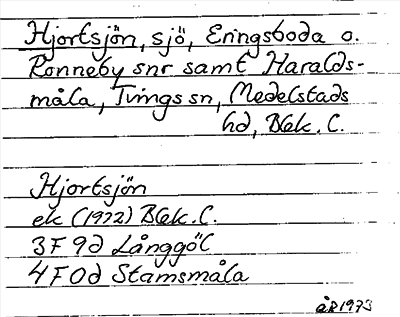 Hjortsjön, sjö, Eringsboda o.
Ronneby snr samt Haralds-
måla, Tvings sn, Medelstads
hd, Blek. L.
Hjortsjön
ek (1972) Blek. L.
3F 9d Långgöl
4F 0d Stamsmåla
ÅP 1973